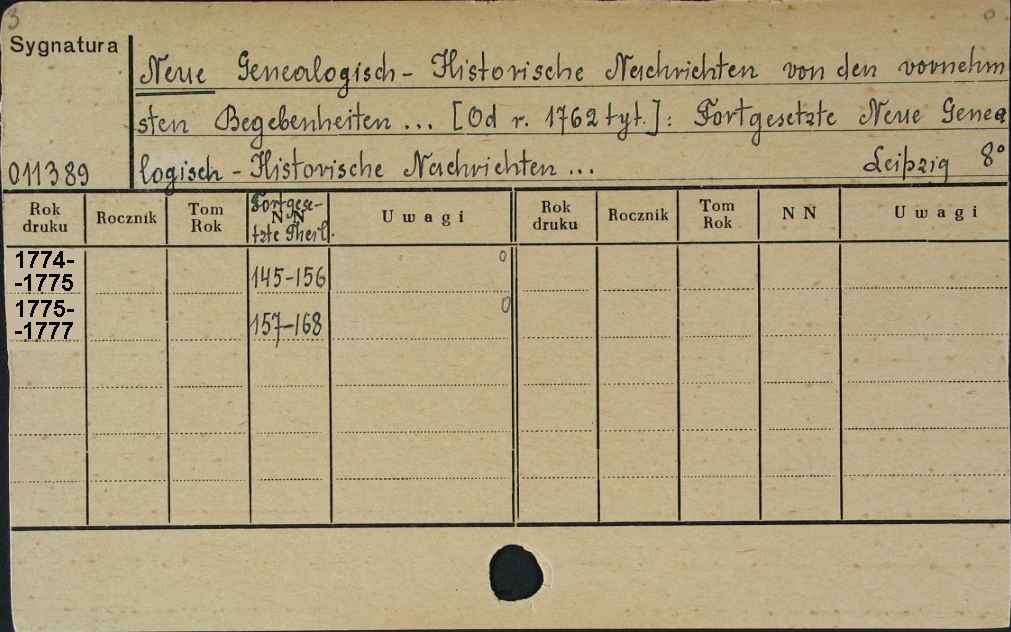 3
Sygnatura
Neue Genealogisch - Historische Nachrichten von den vornehm
sten Begebenheiten ... [Od r. 1762 tyt.]: Fortgesetzte Neue Genea
011389 logisch - Historische Nachrichten ... Leipzig 8°
Rok druku Rocznik Tom Rok Fortgese- NN tzte Theil. Uwagi Rok druku Rocznik Tom Rok NN Uwagi
1774-
-1775 145-156
1775-
-1777 157-168